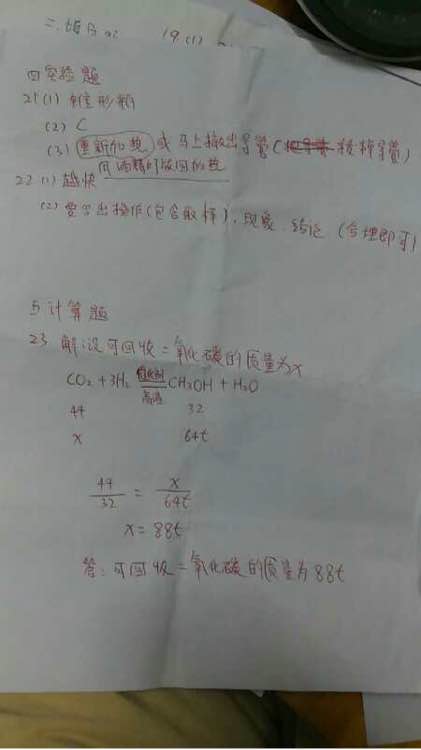 二.
19.(1)
四实验题
21(1) 锥形瓶
(2) C
(3) 重新加热 或 马上撤出导管( 移掉导管)
用酒精灯
22 (1) 越快
(2) 要写出操作(包含取样)、现象、结论 (合理即可)
五 计算题
23 解:设可回收二氧化碳的质量为x
CO₂ + 3H₂ 催化剂 高温 CH₃OH + H₂O
44 32
x 64t
44/32 = x/64t
x = 88t
答:可回收二氧化碳的质量为88t